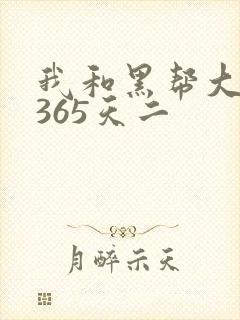 我和黑帮大
365天二
月醉示天